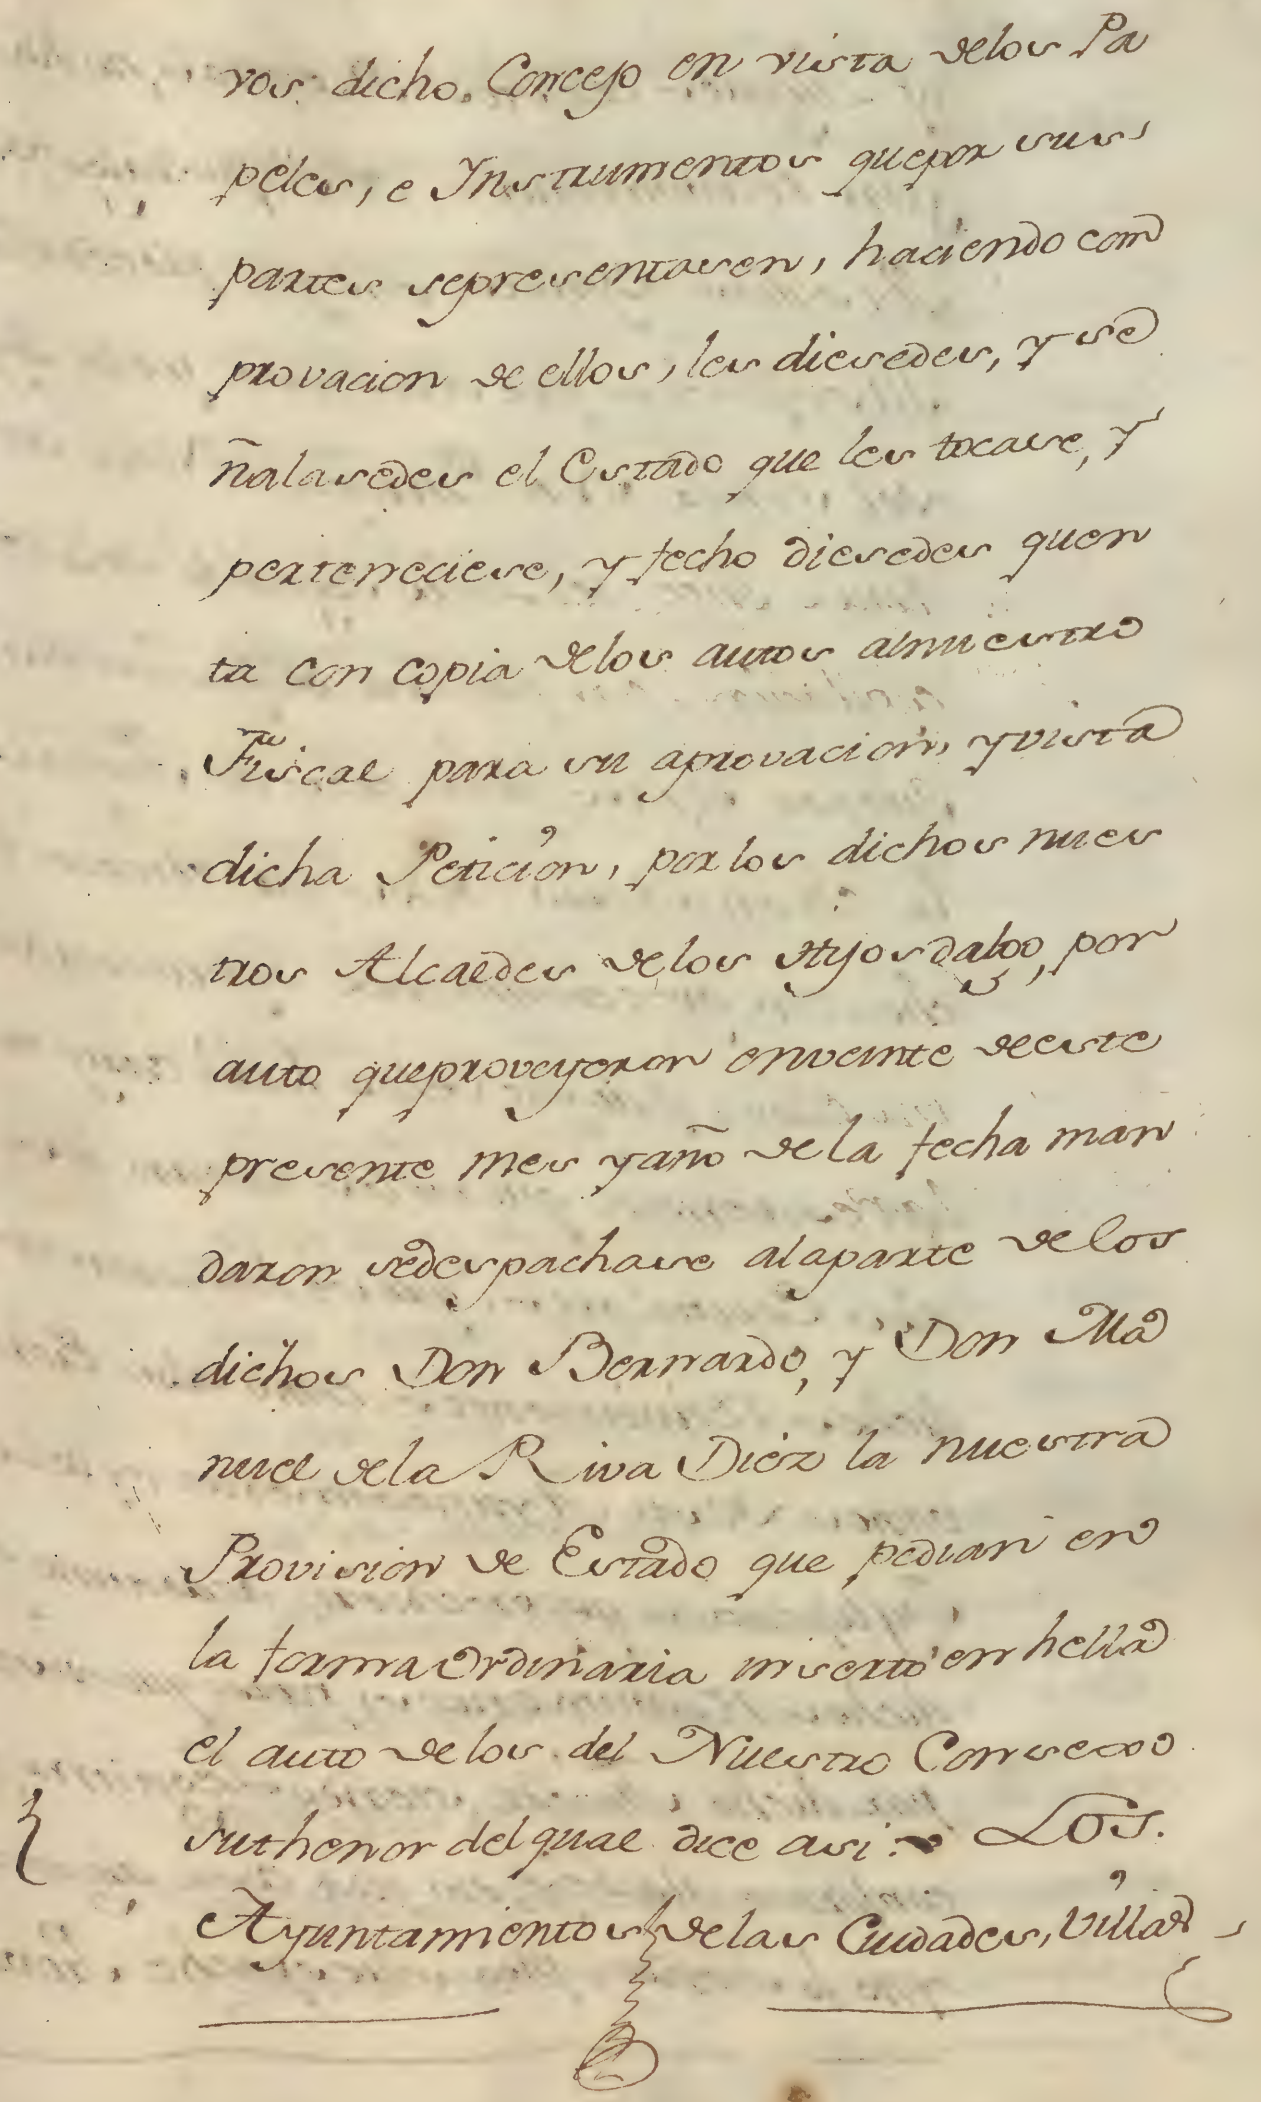 vos dicho, Concejo en vista delos Pa
peles, e Ynstrumentos quepor sus
partes sepresentasen, haciendo com
provacion de ellos, les diesedes, y se
ñalasedes el Estado que les tocase, y
perteneciese, y fecho diesedes quen
ta con copia delos autos alnuestro
Fiscal para su aprovacion, yvista
dicha Peticion, por los dichos nues
tros Alcaldes delos Hijosdalgo, por
auto queproveyeron enveinte deeste
presente mes yaño de la fecha man
daron sedespachase alaparte de los
dichos Don Bernardo, y Don Ma
nuel dela Riva Diez la nuestra
Provision de Estado que pedian en
la forma Ordinaria inserto en hella
el auto delos del Nuestro Consexo
suthenor del qual dice asi: Los.
Ayuntamientos delas Ciudades, Villas